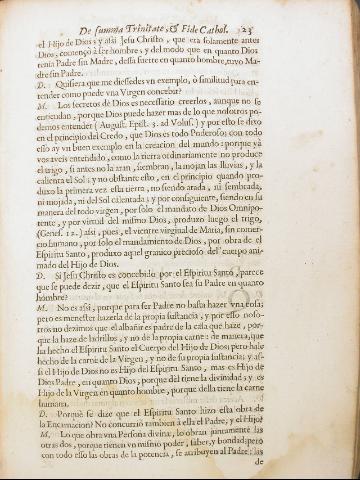 De summa Trinitate, & Fide Cathol. 23
el Hijo de Dios; y assi Jesu Christo, que era solamente antes
Dios, començò à ser hombre; y del modo que en quanto Dios
tenia Padre sin Madre, dessa suerte en quanto hombre, tuvo Ma-
dre sin Padre.
D. Quisiera que me diessedes vn exemplo, ò similitud para en-
tender como puede vna Virgen concebir?
M. Los secretos de Dios es necessario creerlos, aunque no se
entiendan, porque Dios puede hazer mas de lo que nosotros po-
demos entender (August. Epist. 3. ad Volus.) y por esso se dize
en el principio del Credo, que Dios es todo Poderoso; con todo
esso ay vn buen exemplo en la creacion del mundo: porque yà
vos aveis entendido, como la tierra ordinariamente no produce
el trigo, si antes no la aran, siembran, la mojan las lluvias, y la
calienta el Sol; y no obstante esto, en el principio quando pro-
duxo la primera vez esta tierra, no siendo arada, ni sembrada,
ni mojada, ni del Sol calentada; y por consiguiente, siendo en su
manera del todo virgen, por sólo el mandato de Dios Omnipo-
tente, y por virtud del mismo Dios, produxo luego el trigo,
(Genes. 12.) assi, pues, el vientre virginal de Maria, sin comer-
cio humano, por solo el mandamiento de Dios, por obra de el
Espiritu Santo, produxo aquel grano precioso del cuerpo ani-
mado del Hijo de Dios.
D. Si Jesu Christo es concebido por el Espiritu Santo, parece
que se puede dezir, que el Espiritu Santo sea su Padre en quanto
hombre?
M. No es assi, porque para ser Padre no basta hazer vna cosa;
pero es menester hazerla de la propia sustancia, y por esso noso-
tros no dezimos que el albañir es padre de la casa que haze, por-
que la haze de ladrillos, y no de la propia carne: de manera, que
ha hecho el Espiritu Santo el Cuerpo del Hijo de Dios; pero hale
hecho de la carne de la Virgen, y no de su propia sustancia; y as-
si el Hijo de Dios no es Hijo del Espiritu Santo, mas es Hijo de
Dios Padre, en quanto Dios, porque dèl tiene la divinidad; y es
Hijo de la Virgen en quanto hombre, porque della tiene la carne
humana.
D. Porquè se dize que el Espiritu Santo hizo esta obra de
la Encarnacion? No concurriò tambien à ella el Padre, y el Hijo?
M. Lo que obra vna Persona divina, lo obran juntamente las
otras dos, porque tienen vn mismo poder, saber, y bondad; pero
con todo esso las obras de la potencia, se atribuyen al Padre; las
de